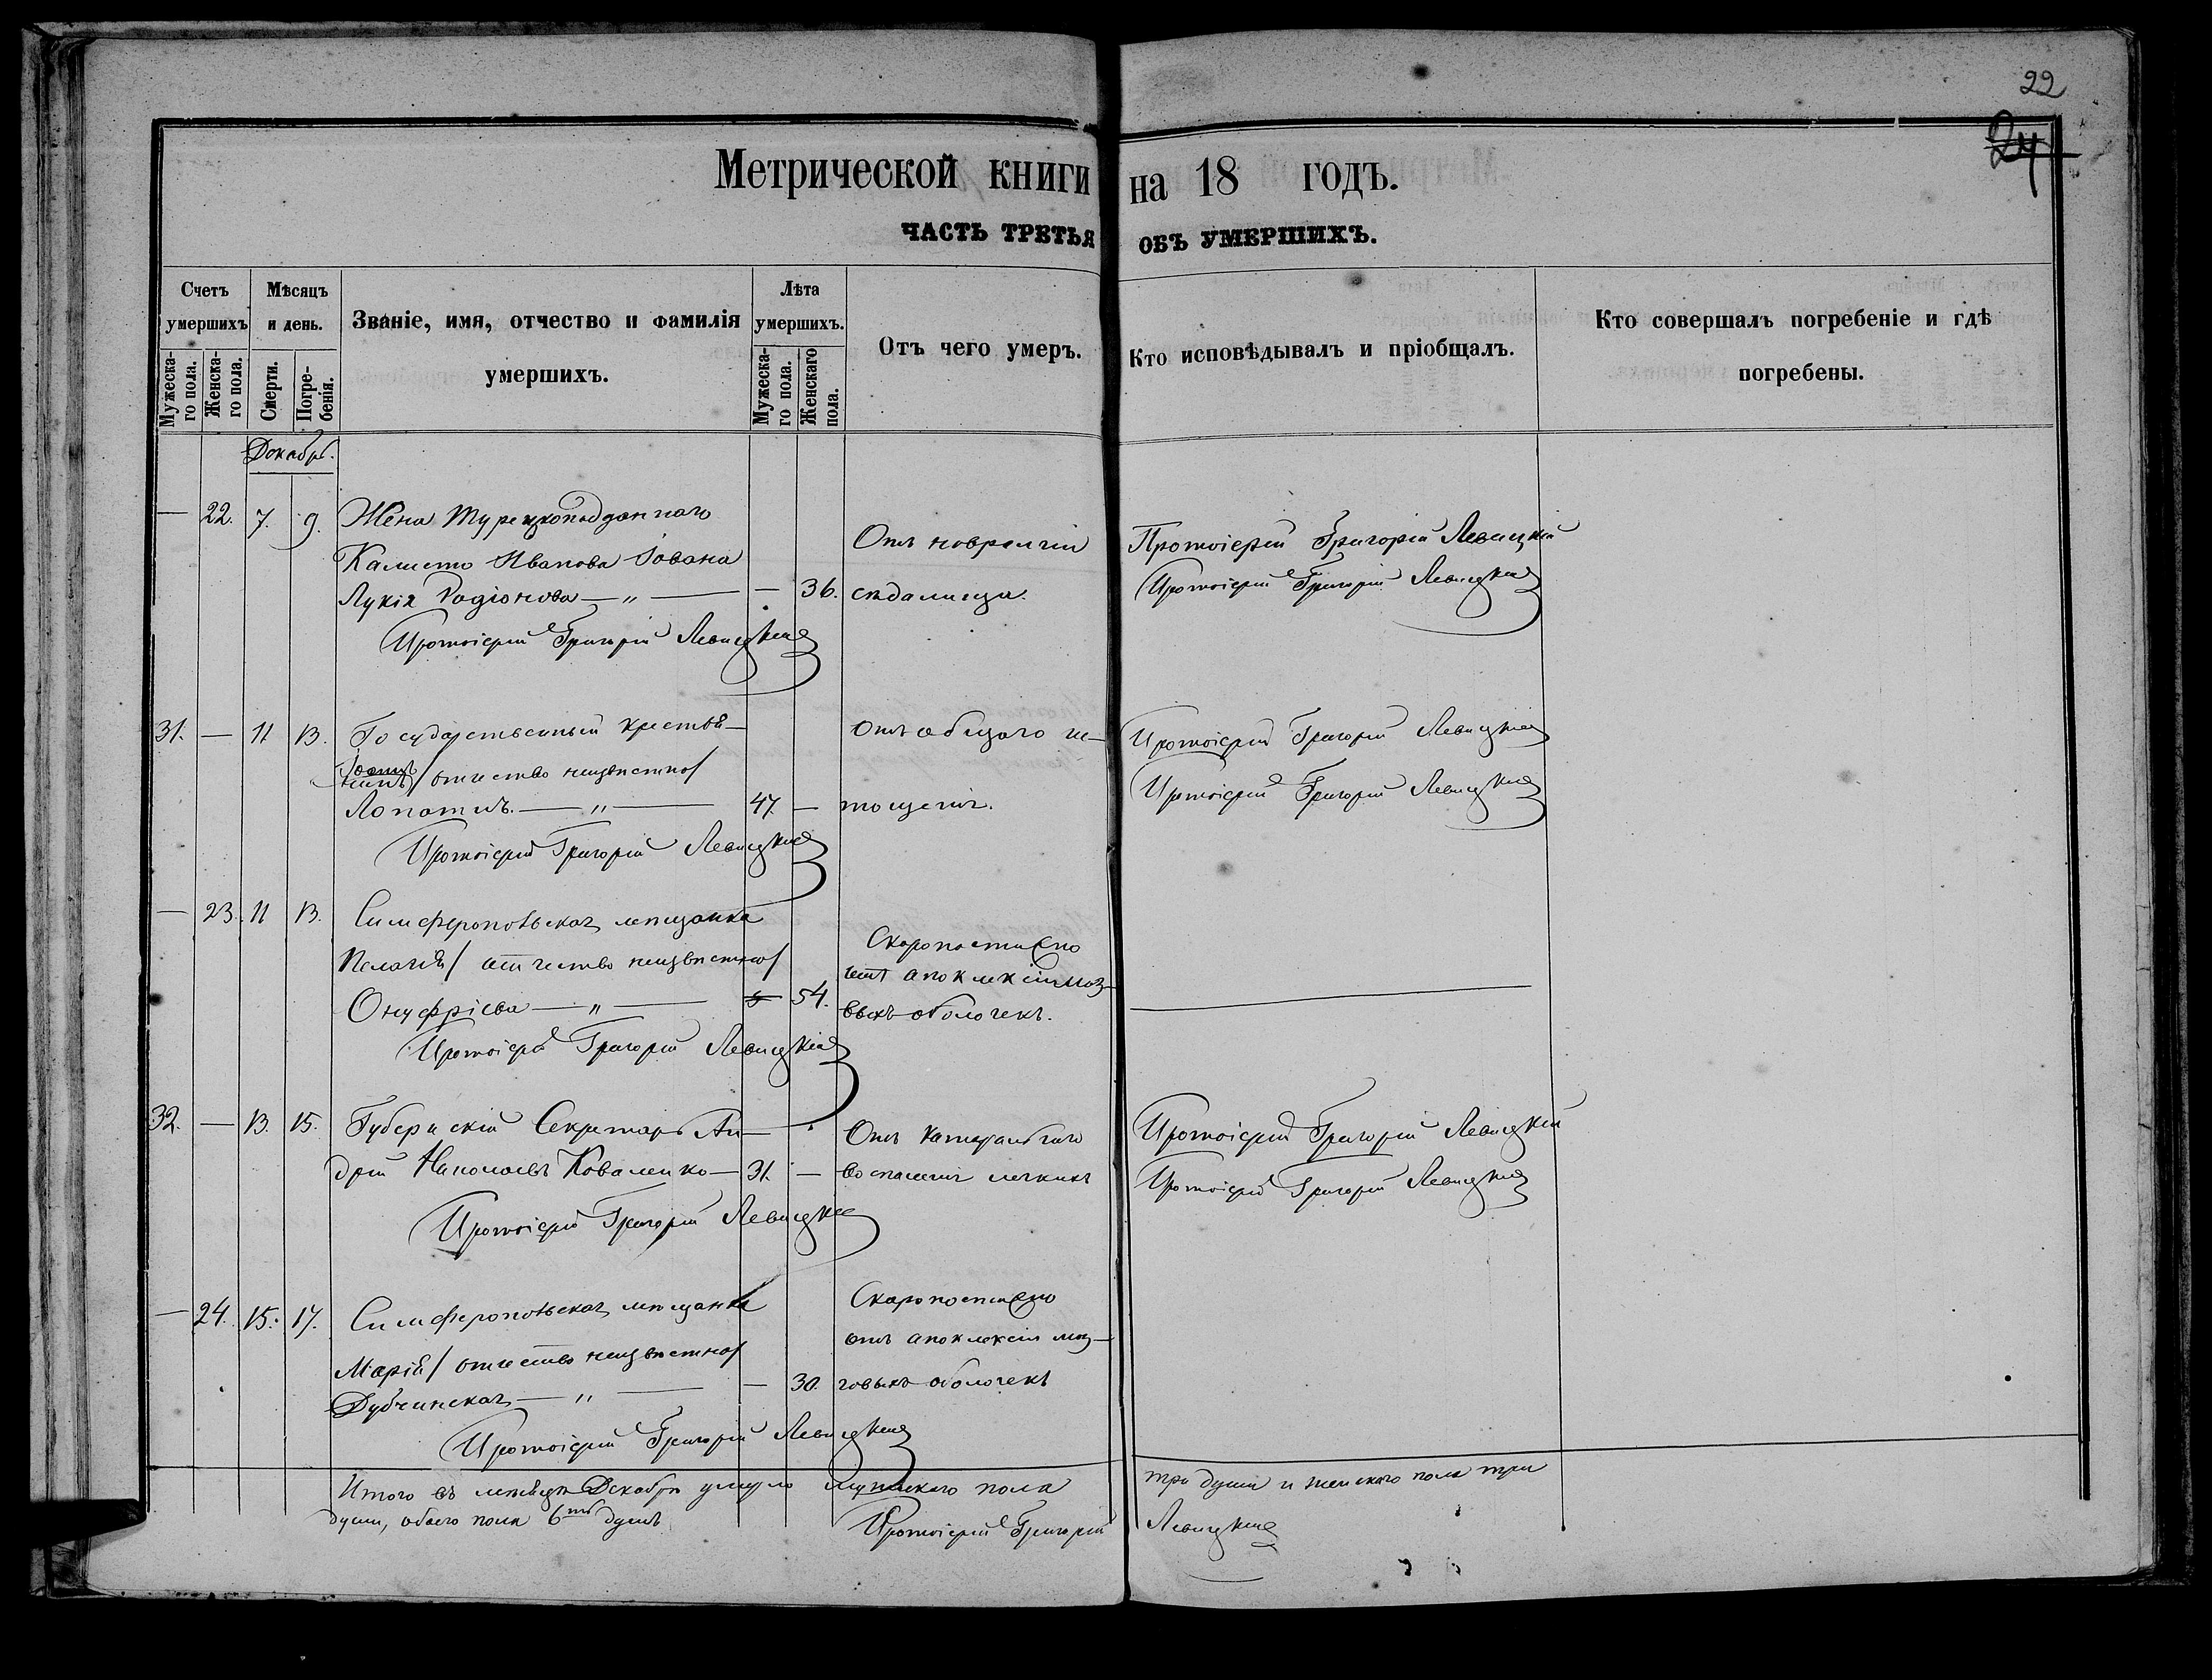 22
24
Метрической книги на 18 годъ.
ЧАСТЬ ТРЕТЬЯ ОБЪ УМЕРШИХЪ.
Счетъ умершихъ
Мужеска-го пола.
Женска-го пола.
Мѣсяцъ и день.
Смерти.
Погре-бенія.
Званіе, имя, отчество и фамилія умершихъ.
Лѣта умершихъ.
Мужеска-го пола.
Женскаго пола.
Отъ чего умеръ.
Кто исповѣдывалъ и пріобщалъ.
Кто совершалъ погребеніе и гдѣ погребены.
Декабрь.
— 22. 7. 9. Жена Турецкоподданнаго
Калисто Иванова Іована
Лукія Родіонова — „ — — 36.
Отъ невралгіи
сѣдалища.
Протоіерей Григорій Левицкій
Протоіерей Григорій Левицкій
Протоіерей Григорій Левицкій
31. — 11 13. Государственный крестья-
нинъ / отчество неизвѣстно /
Лопатинъ. — „ — 47. —
Отъ общаго ис-
тощенія.
Протоіерей Григорій Левицкій
Протоіерей Григорій Левицкій
Протоіерей Григорій Левицкій
— 23. 11 13. Симферопольская мѣщанка
Пелагія / отчество неизвѣстно /
Онуфріева — „ — 54.
Скоропостижно
отъ апоплексіи моз-
выхъ оболочекъ.
Протоіерей Григорій Левицкій
32. — 13. 15. Губернскій Секретарь Ан-
дрей Николаевъ Коваленко — 31. —
Отъ катарральнаго
воспаленія легкихъ
Протоіерей Григорій Левицкій
Протоіерей Григорій Левицкій
Протоіерей Григорій Левицкій
— 24. 15. 17. Симферопольская мѣщанка
Марія / отчество неизвѣстно /
Дубчинская — „ — — 30.
Скоропостижно
отъ апоплексіи моз-
говыхъ оболочекъ
Протоіерей Григорій Левицкій
Итого въ мѣсяцѣ Декабрѣ умерло мужескаго пола три души и женскаго пола три
души, обоего пола 6ть душъ
Протоіерей Григорій Левицкій